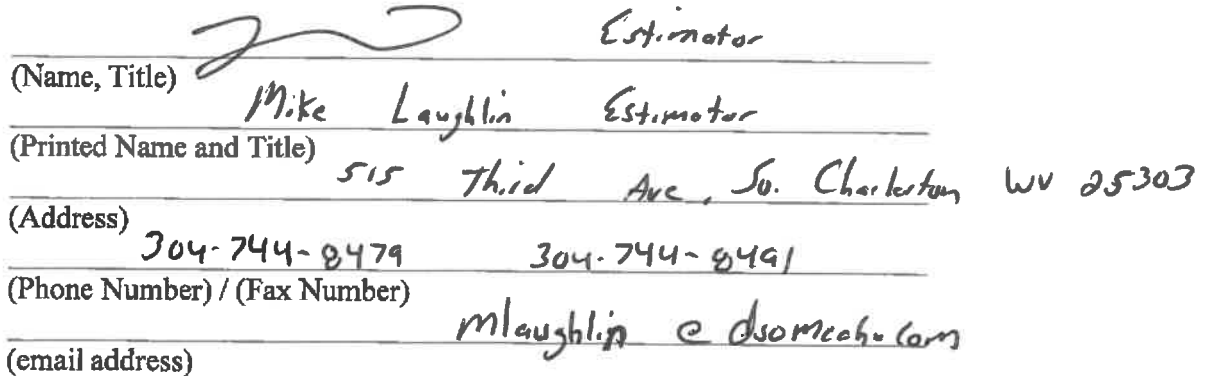 Estimator
(Name, Title)
Mike Laughlin Estimator
(Printed Name and Title)
515 Third Ave, So. Charleston WV 25303
(Address)
304-744-8479 304-744-8491
(Phone Number) / (Fax Number)
mlaughlin @
(email address)